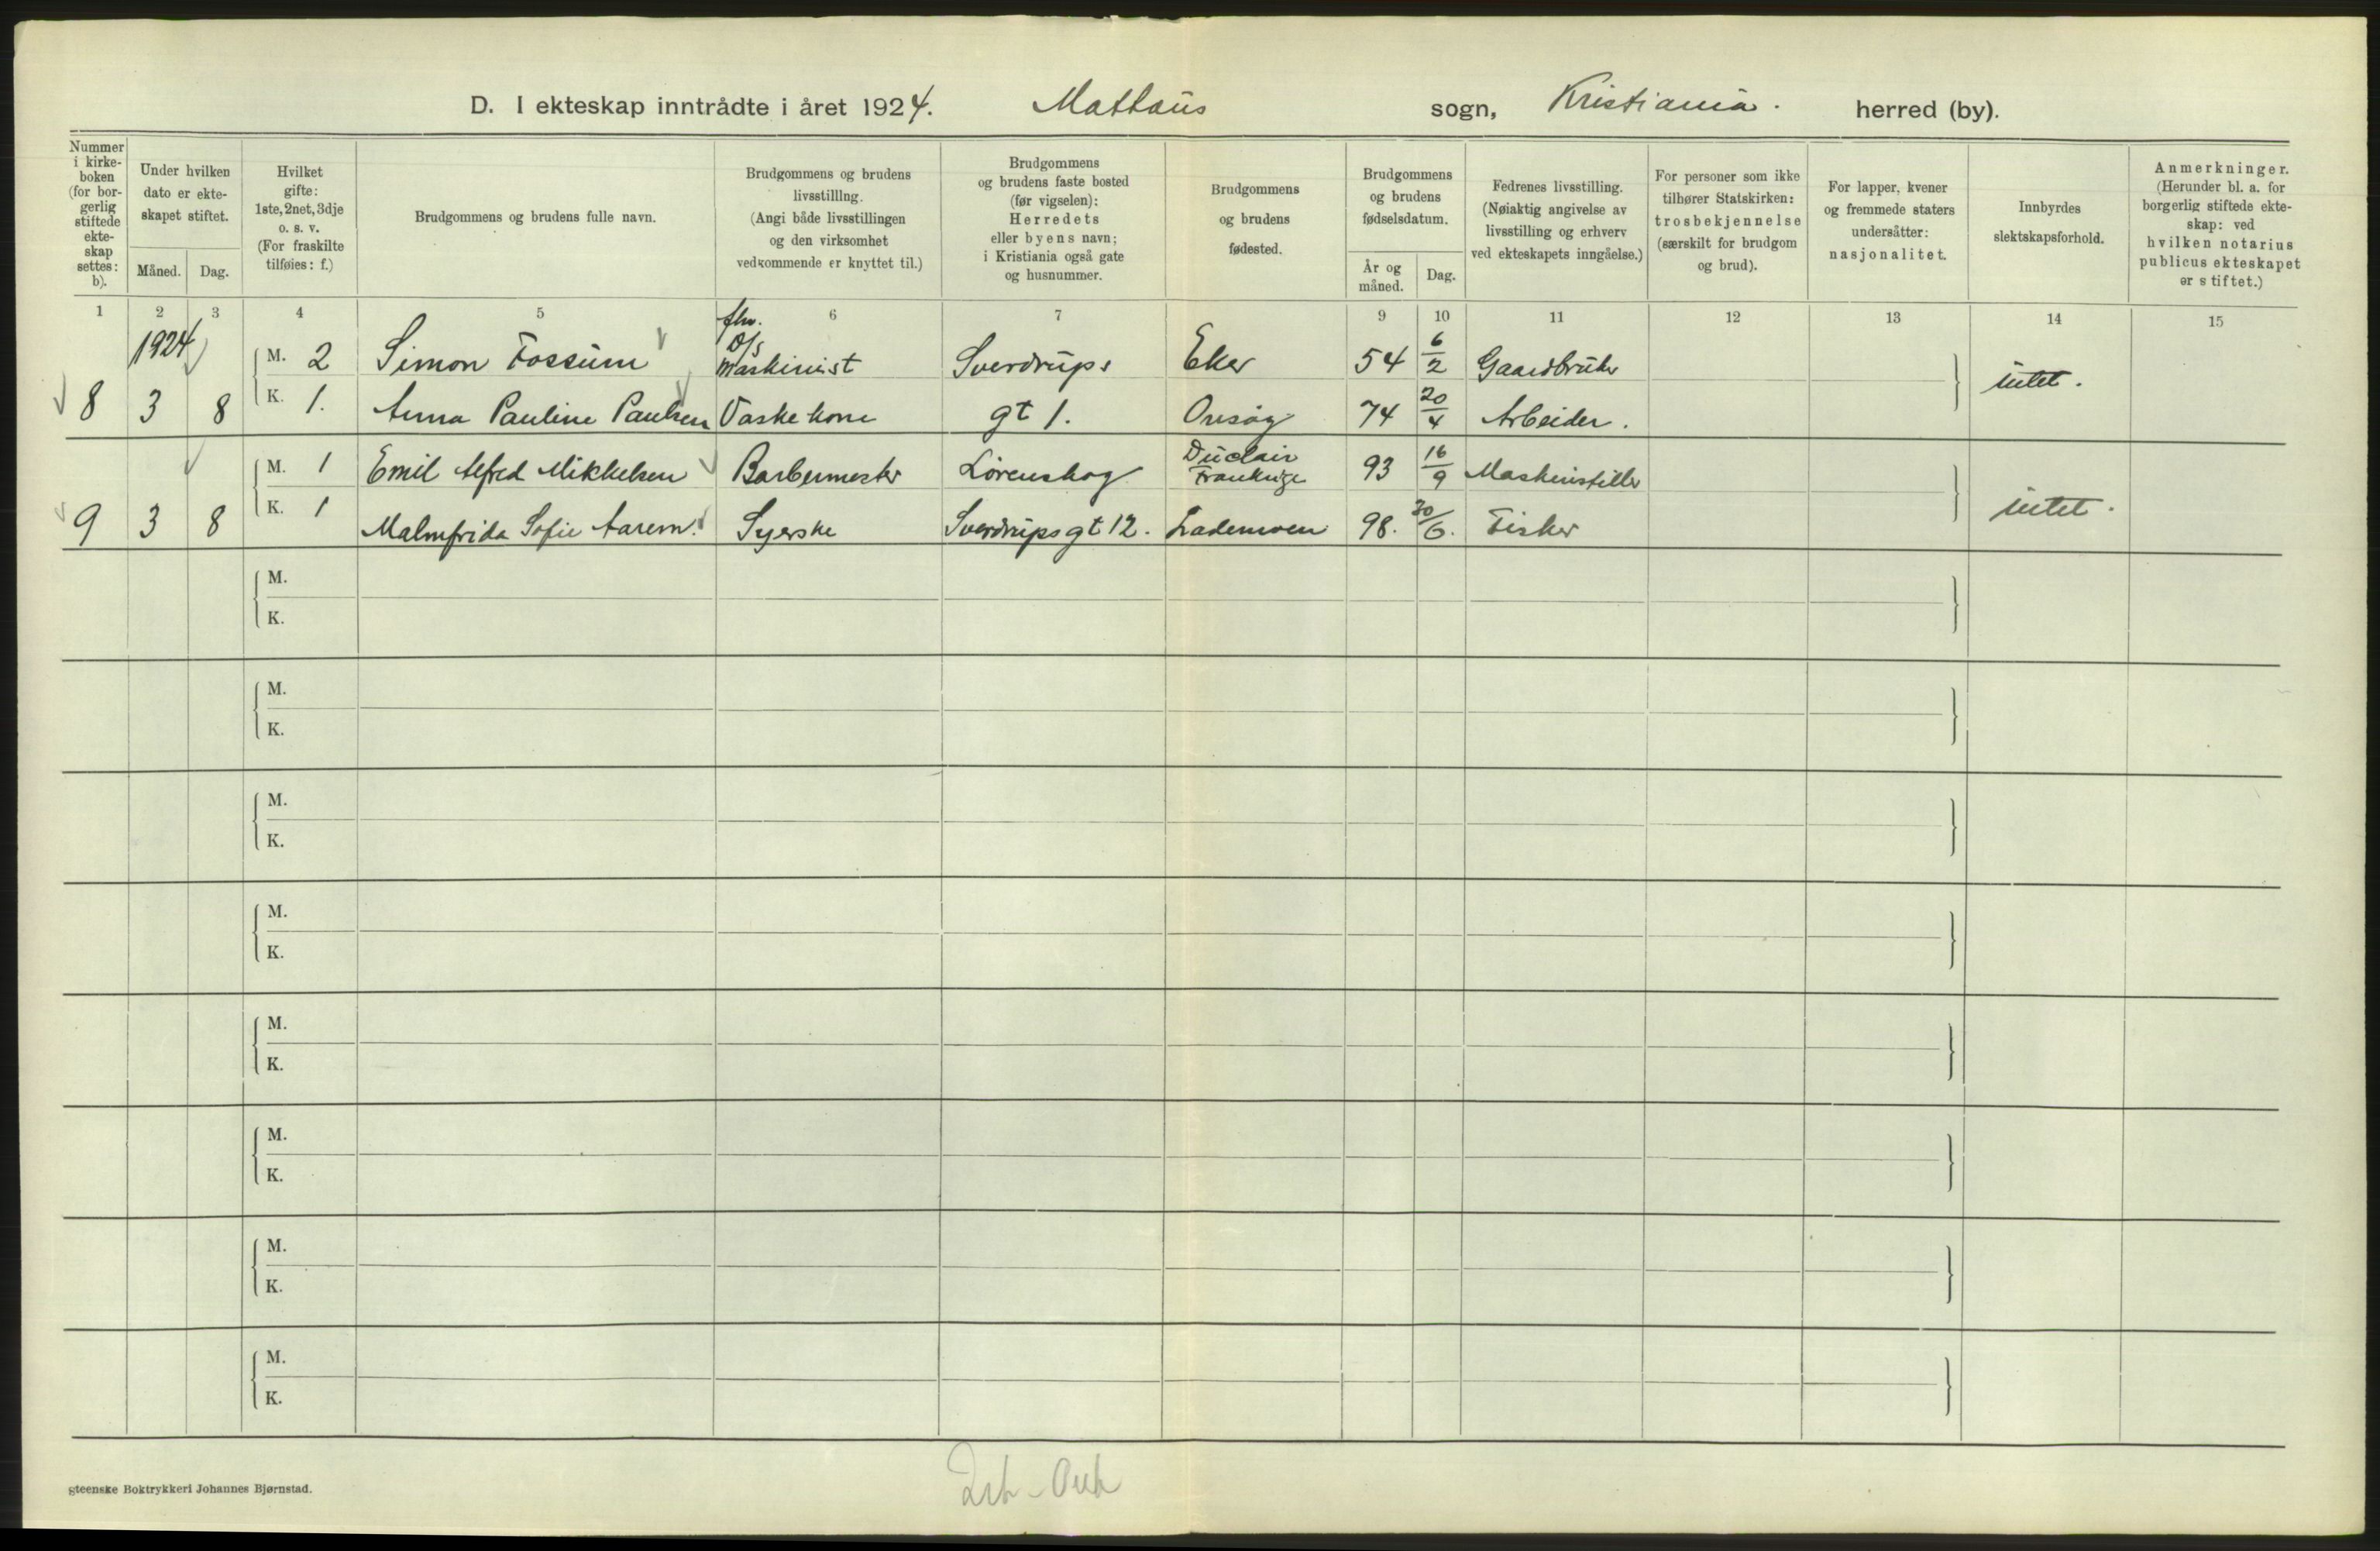 D. I ekteskap inntrådte i året 1924. Mattäus sogn, Kristiania. herred (by).
Nummer i kirke-boken (for bor-gerlig stiftede ekte-skap settes: b).
Under hvilken dato er ekte-skapet stiftet.
Måned. Dag.
Hvilket gifte: 1ste, 2net, 3dje o. s. v. (For fraskilte tilføies: f.)
Brudgommens og brudens fulle navn.
Brudgommens og brudens livsstilllng. (Angi både livsstillingen og den virksomhet vedkommende er knyttet til.)
Brudgommens og brudens faste bosted (før vigselen): Herredets eller byens navn; i Kristiania også gate og husnummer.
Brudgommens og brudens fødested.
Brudgommens og brudens fødselsdatum.
År og måned. Dag.
Fedrenes livsstilling. (Nøiaktig angivelse av livsstilling og erhverv ved ekteskapets inngåelse.)
For personer som ikke tilhører Statskirken: trosbekjennelse (særskilt for brudgom og brud).
For lapper, kvener og fremmede staters undersåtter: nasjonalitet.
Innbyrdes slektskapsforhold.
Anmerkninger. (Herunder bl. a. for borgerlig stiftede ekte-skap: ved hvilken notarius publicus ekteskapet er stiftet.)
1 2 3 4 5 6 7 8 9 10 11 12 13 14 15
1924 M. 2 Simon Fossum fhv. D/s maskinist Sverdrups Eker 54 6/2 Gaardbruker
8 3 8 K. 1. Anna Pauline Paulsen Vaskekone gt 1. Onsøy 74 20/4 Arbeider. intet.
M. 1 Emil Alfred Mikkelsen Barbermester Lørenskog Duclair Frankrige 93 16/9 Maskinstiller
9 3 8 K. 1 Malmfrida Sofie Syerske Sverdrupsgt 12. Lademoen 98. 30/6. Fisker intet.
M.
K.
M.
K.
M.
K.
M.
K.
M.
K.
M.
K.
M.
K.
M.
K.
steenske Boktrykkeri Johannes Bjørnstad.